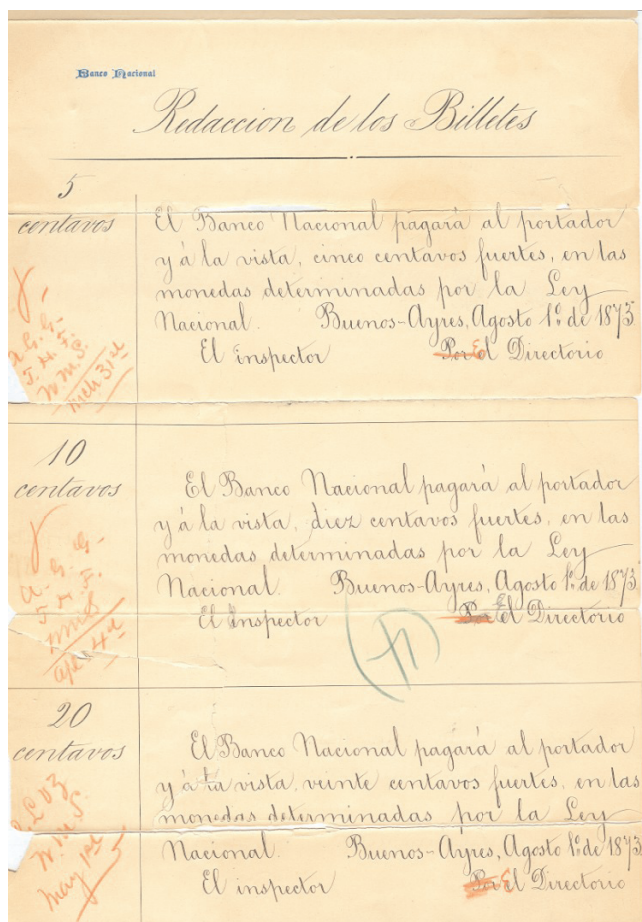 Banco Nacional
Redaccion de los Billetes
5
centavos
El Banco Nacional pagará al portador
y á la vista, cinco centavos fuertes, en las
monedas determinadas por la Ley
Nacional. Buenos-Ayres, Agosto 1º de 1873
El inspector Por El Directorio
A. G. G-
T. H. F.
W. M. S.
Mch 31st
10
centavos
El Banco Nacional pagará al portador
y á la vista, diez centavos fuertes, en las
monedas determinadas por la Ley
Nacional. Buenos-Ayres, Agosto 1º de 1873
El Inspector Por El Directorio
A. G. G-
T. H. F.
WMS
Apl 4th
14
20
centavos
El Banco Nacional pagará al portador
y á la vista, veinte centavos fuertes, en las
monedas determinadas por la Ley
Nacional. Buenos-Ayres, Agosto 1º de 1873
El inspector Por El Directorio
W. M. S.
May 1st